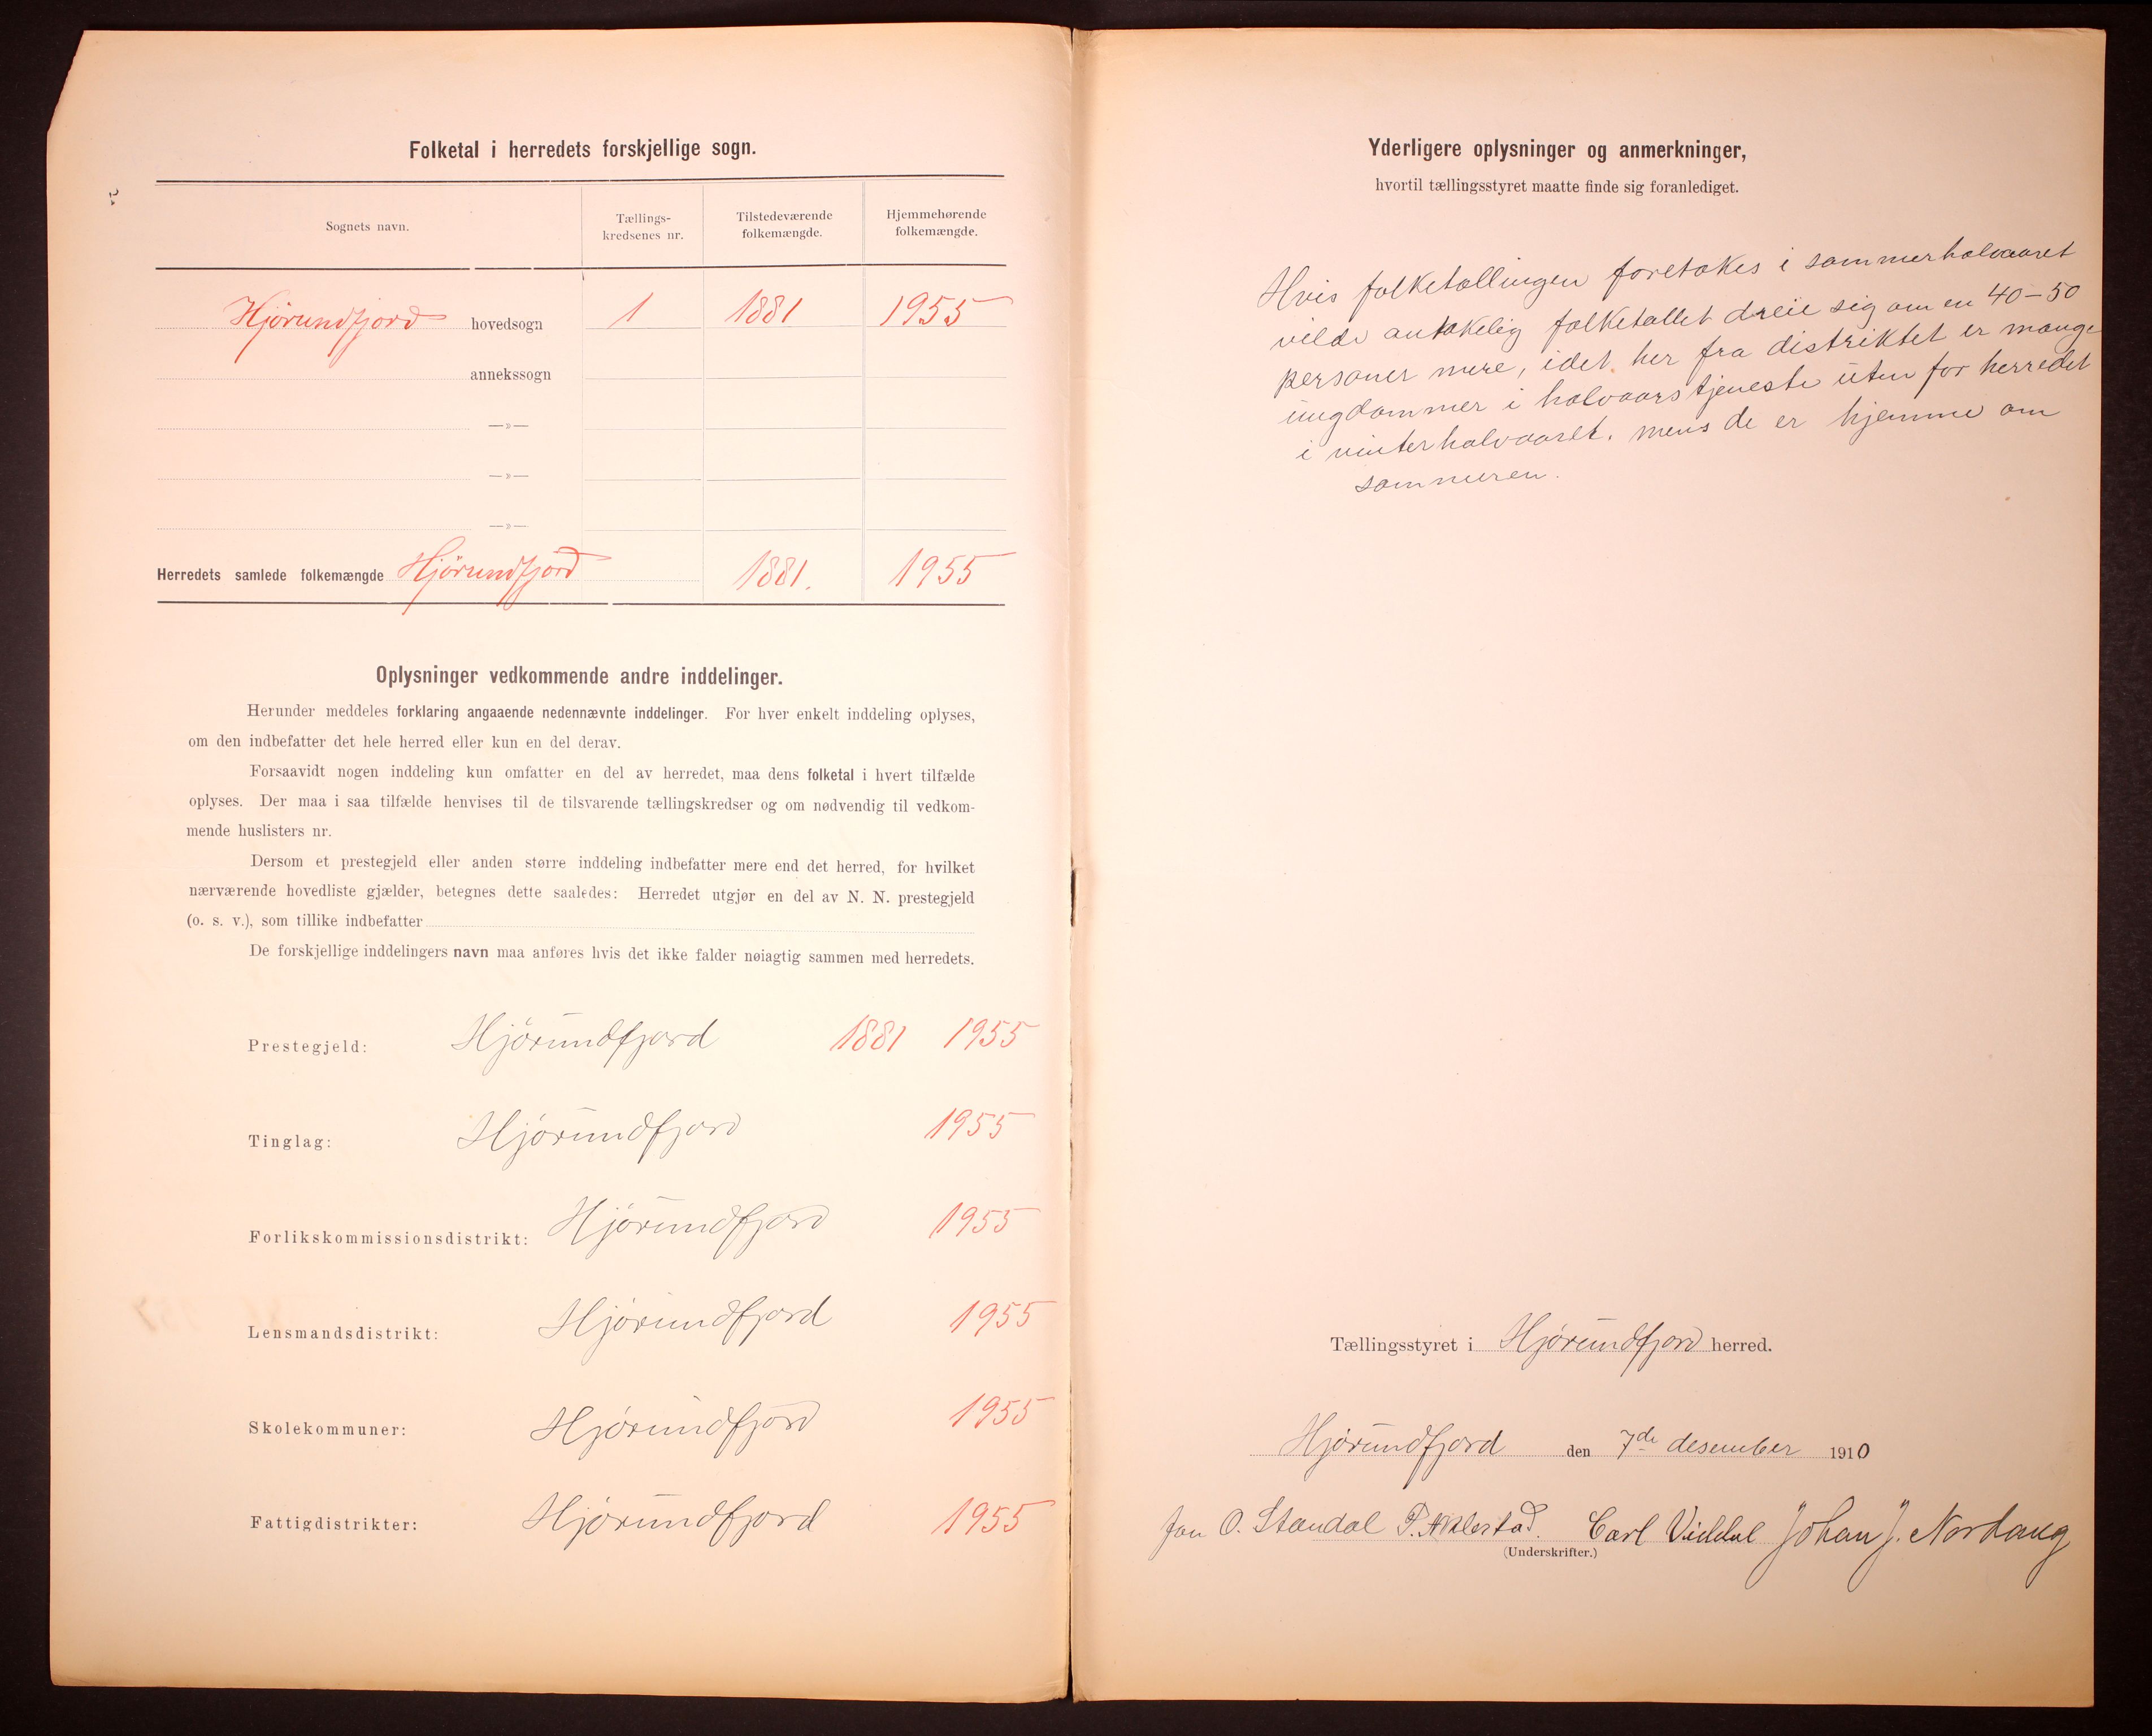 Folketal i herredets forskjellige sogn.
Sognets navn.
Tællings-
kredsenes nr.
Tilstedeværende
folkemængde.
Hjemmehørende
folkemængde.
Hjørundfjord hovedsogn 1 1881 1955
annekssogn
—»—
—»—
—»—
Herredets samlede folkemængde Hjørundfjord 1881. 1955
Oplysninger vedkommende andre inddelinger.
Herunder meddeles forklaring angaaende nedennævnte inddelinger. For hver enkelt inddeling oplyses,
om den indbefatter det hele herred eller kun en del derav.
Forsaavidt nogen inddeling kun omfatter en del av herredet, maa dens folketal i hvert tilfælde
oplyses. Der maa i saa tilfælde henvises til de tilsvarende tællingskredser og om nødvendig til vedkom-
mende huslisters nr.
Dersom et prestegjeld eller anden større inddeling indbefatter mere end det herred, for hvilket
nærværende hovedliste gjælder, betegnes dette saaledes: Herredet utgjør en del av N. N. prestegjeld
(o. s. v.), som tillike indbefatter
De forskjellige inddelingers navn maa anføres hvis det ikke falder nøiagtig sammen med herredets.
Prestegjeld: Hjørundfjord 1881 1955
Tinglag: Hjørundfjord 1955
Forlikskommissionsdistrikt: Hjørundfjord 1955
Lensmandsdistrikt: Hjørundfjord 1955
Skolekommuner: Hjørundfjord 1955
Fattigdistrikter: Hjørundfjord 1955
Yderligere oplysninger og anmerkninger,
hvortil tællingsstyret maatte finde sig foranlediget.
Hvis folketællingen foretakes i sommerhalvaaret
vilde antakelig folketallet dreie sig om en 40-50
personer mere, idet her fra distriktet er mange
ungdommer i halvaarstjeneste uten for herredet
i vinterhalvaaret, mens de er hjemme om
sommeren.
Tællingsstyret i Hjørundfjord herred.
Hjørundfjord den 7de desember 1910
Jon O. Standal P. Carl Viddal Johan J. Nordang
(Underskrifter.)